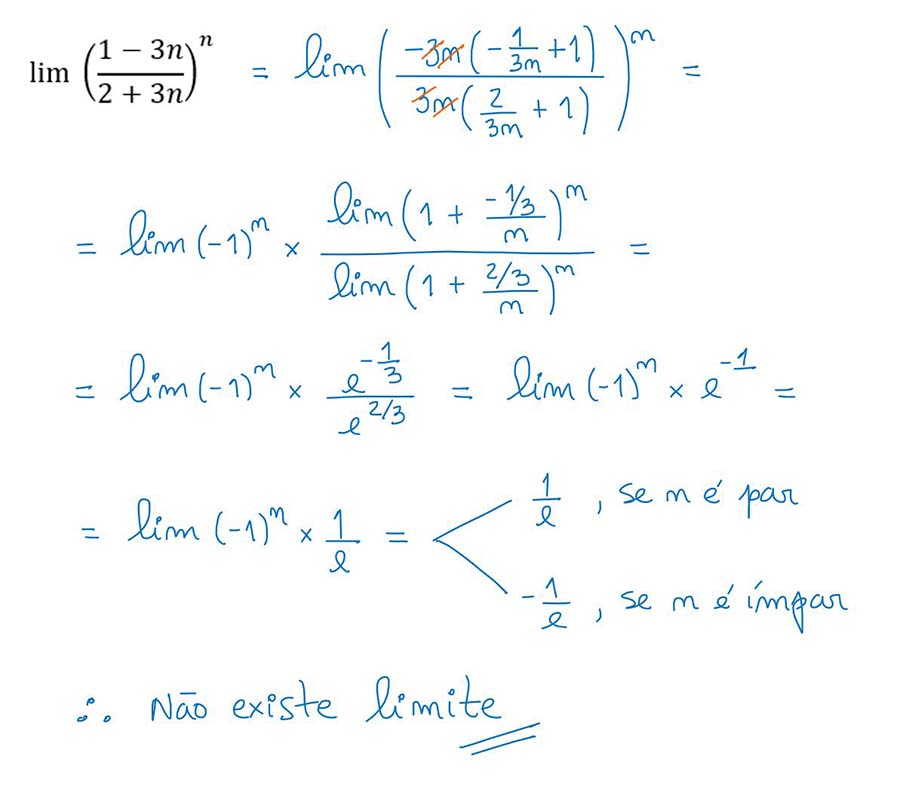 lim ((1 − 3n)/(2 + 3n))^n = lim ((−3n(−1/(3n) + 1))/(3n(2/(3n) + 1)))^n =
= lim (−1)^n × (lim (1 + (−1/3)/n)^n)/(lim (1 + (2/3)/n)^n) =
= lim (−1)^n × e^(−1/3)/e^(2/3) = lim (−1)^n × e^(−1) =
= lim (−1)^n × 1/e = < 1/e , se n é par
−1/e , se n é ímpar
∴ Não existe limite